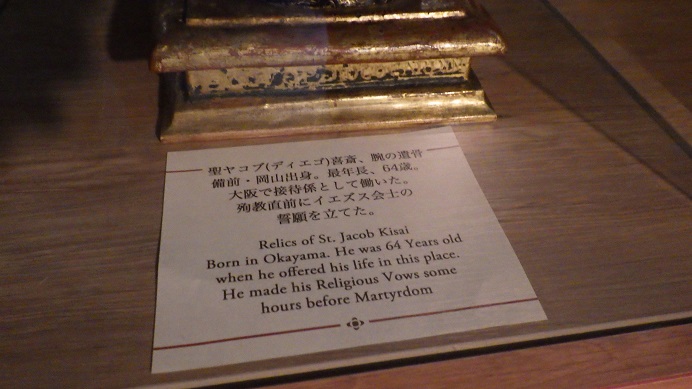 聖ヤコブ(ディエゴ)喜斎、腕の遺骨
備前・岡山出身。最年長、64歳。
大阪で接待係として働いた。
殉教直前にイエズス会士の
誓願を立てた。
Relics of St. Jacob Kisai
Born in Okayama. He was 64 Years old
when he offered his life in this place.
He made his Religious Vows some
hours before Martyrdom